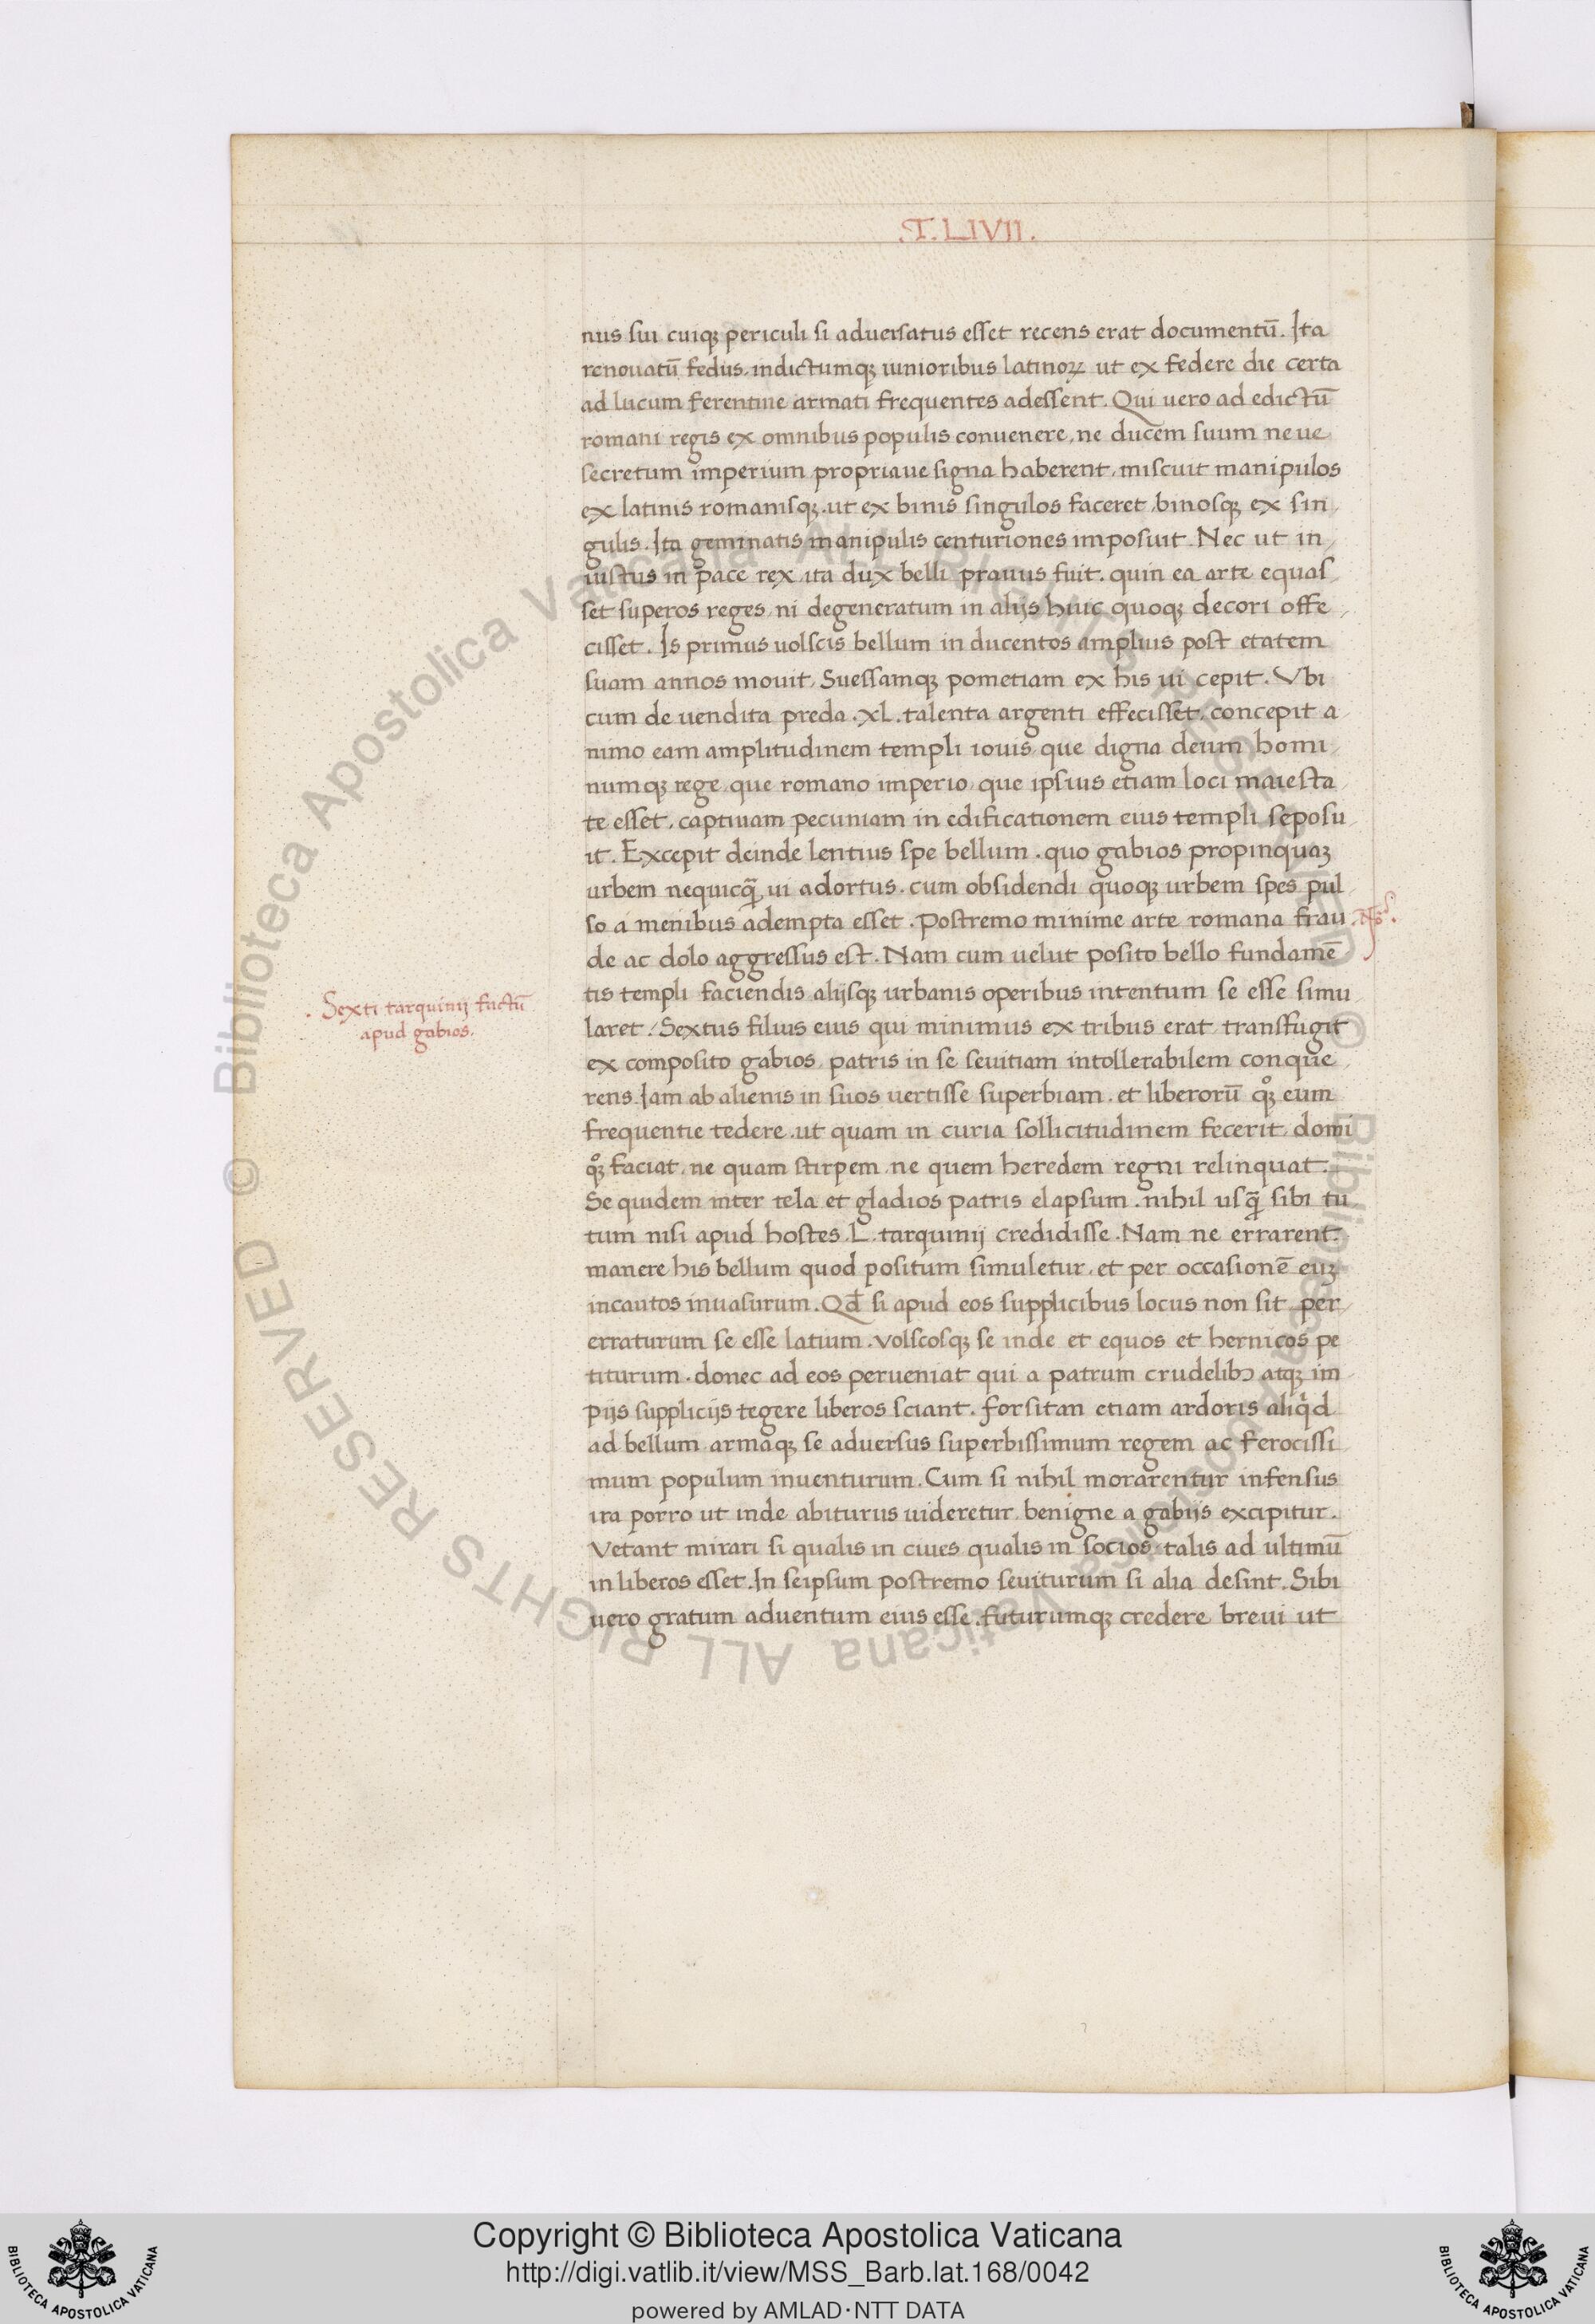 .T. LIVII.
nus sui cuiqꝫ periculi si aduersatus esset recens erat documentū. Ita
renouatū fedus. indictumqꝫ iunioribus latinoꝝ ut ex federe die certa
ad lucum ferentine armati frequentes adessent. Qui uero ad edictū
romani regis ex omnibus populis conuenere, ne ducem suum neue
secretum imperium propriaue signa haberent, miscuit manipulos
ex latinis romanisqꝫ. ut ex binis singulos faceret, binosqꝫ ex sin
gulis. Ita geminatis manipulis centuriones imposuit. Nec ut in
iustus in pace rex, ita dux belli prauus fuit. quin ea arte equas
set superos reges, ni degeneratum in alijs huic quoqꝫ decori offe
cisset. Is primus uolscis bellum in ducentos amplius post etatem
suam annos mouit, Suessamqꝫ pometiam ex his ui cepit. Vbi
cum de uendita preda .XL. talenta argenti effecisset. concepit a
nimo eam amplitudinem templi iouis, que digna deum homi
numqꝫ rege, que romano imperio, que ipsius etiam loci maiesta
te esset. captiuam pecuniam in edificationem eius templi seposu
it. Excepit deinde lentius spe bellum. quo gabios propinquaꝫ
urbem nequicq̄ ui adortus. cum obsidendi quoqꝫ urbem spes pul
so a menibus adempta esset. Postremo minime arte romana frau
de ac dolo aggressus est. Nam cum uelut posito bello fundamē
tis templi faciendis alijsqꝫ urbanis operibus intentum se esse simu
. Sexti tarquinij factū
apud gabios.
laret. Sextus filius eius qui minimus ex tribus erat transfugit
ex composito gabios, patris in se seuitiam intollerabilem conque
rens. Iam ab alienis in suos uertisse superbiam. et liberorū qͦꝫ eum
frequentie tedere. ut quam in curia sollicitudinem fecerit, domi
qͦꝫ faciat, ne quam stirpem, ne quem heredem regni relinquat.
Se quidem inter tela et gladios patris elapsum. nihil usq̄ sibi tu
tum nisi apud hostes .L. tarquinij credidisse. Nam ne errarent.
manere his bellum quod positum simuletur. et per occasionē euꝫ
incautos inuasurum. Qđ si apud eos supplicibus locus non sit per
erraturum se esse latium. uolscosqꝫ se inde et equos et hernicos pe
titurum. donec ad eos perueniat qui a patrum crudelibꝫ atqꝫ im
pijs supplicijs tegere liberos sciant. forsitan etiam ardoris aliqͥd
ad bellum armaqꝫ se aduersus superbissimum regem ac ferocissi
mum populum inuenturum. Cum si nihil morarentur infensus
ira porro ut inde abiturus uideretur, benigne a gabijs excipitur.
Vetant mirari si qualis in ciues qualis in socios, talis ad ultimū
in liberos esset. In seipsum postremo seuiturum si alia desint. Sibi
uero gratum aduentum eius esse. futurumqꝫ credere breui ut
© Biblioteca Apostolica Vaticana ALL RIGHTS RESERVED
© Biblioteca Apostolica Vaticana ALL RIGHTS RESERVED
Copyright © Biblioteca Apostolica Vaticana
http://digi.vatlib.it/view/MSS_Barb.lat.168/0042
powered by AMLAD·NTT DATA
BIBLIOTECA APOSTOLICA VATICANA
BIBLIOTECA APOSTOLICA VATICANA